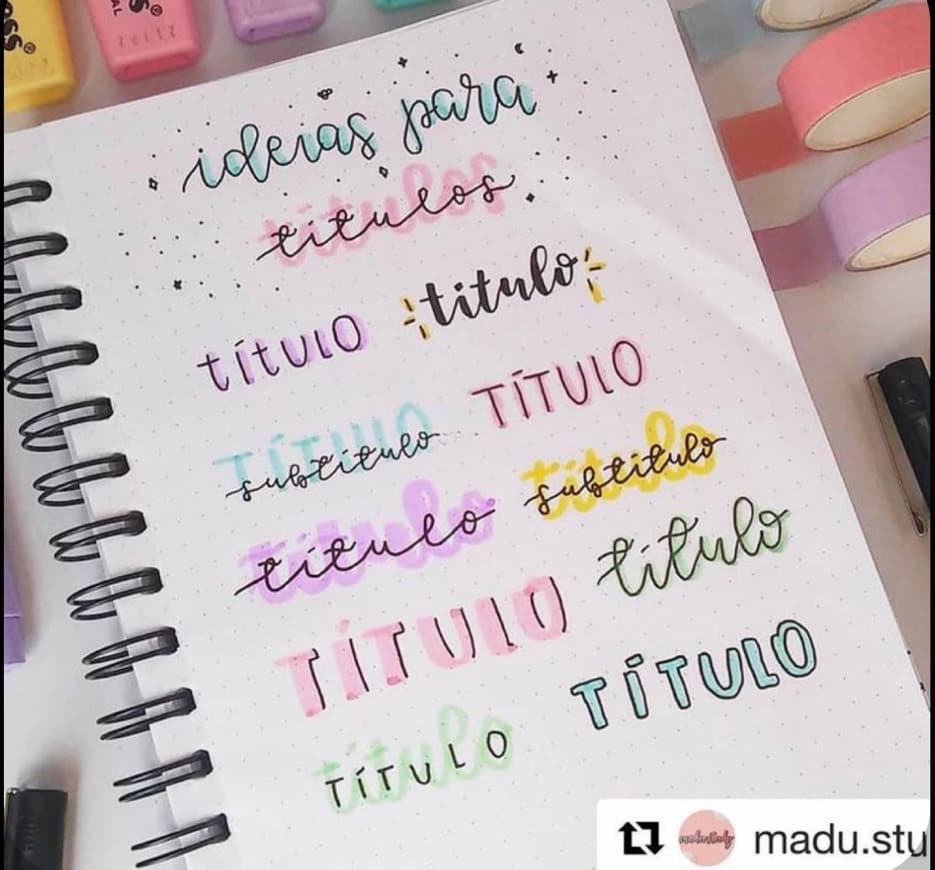 ideias para
títulos
títULO título
TÍTULO TÍTULO
subtítulo
título
título subtítulo
TÍTULO título
TÍTULO TÍTULO
madu.stu